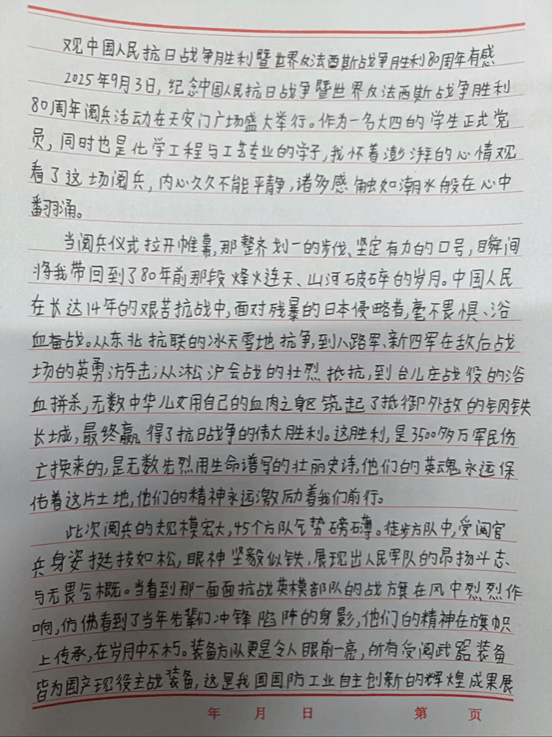 观中国人民抗日战争胜利暨世界反法西斯战争胜利80周年有感
2025年9月3日，纪念中国人民抗日战争暨世界反法西斯战争胜利
80周年阅兵活动在天安门广场盛大举行。作为一名大四的学生正式党
员，同时也是化学工程与工艺专业的学子，我怀着澎湃的心情观
看了这场阅兵，内心久久不能平静，诸多感触如潮水般在心中
翻涌。
当阅兵仪式拉开帷幕，那整齐划一的步伐、坚定有力的口号，瞬间
将我带回到了80年前那段烽火连天、山河破碎的岁月。中国人民
在长达14年的艰苦抗战中，面对残暴的日本侵略者，毫不畏惧、浴
血奋战。从东北抗联的冰天雪地抗争，到八路军、新四军在敌后战
场的英勇游击；从淞沪会战的壮烈抵抗，到台儿庄战役的浴
血拼杀，无数中华儿女用自己的血肉之躯筑起了抵御外敌的钢铁
长城，最终赢得了抗日战争的伟大胜利。这胜利，是3500多万军民伤
亡换来的，是无数先烈用生命谱写的壮丽史诗，他们的英魂永远保
佑着这片土地，他们的精神永远激励着我们前行。
此次阅兵的规模宏大，45个方队气势磅礴。徒步方队中，受阅官
兵身姿挺拔如松，眼神坚毅似铁，展现出人民军队的昂扬斗志
与无畏气概。当看到那一面面抗战英模部队的战旗在风中烈烈作
响，仿佛看到了当年先辈们冲锋陷阵的身影，他们的精神在旗帜
上传承，在岁月中不朽。装备方队更是令人眼前一亮，所有受阅武器装备
皆为国产现役主战装备，这是我国国防工业自主创新的辉煌成果展
年 月 日 第 页